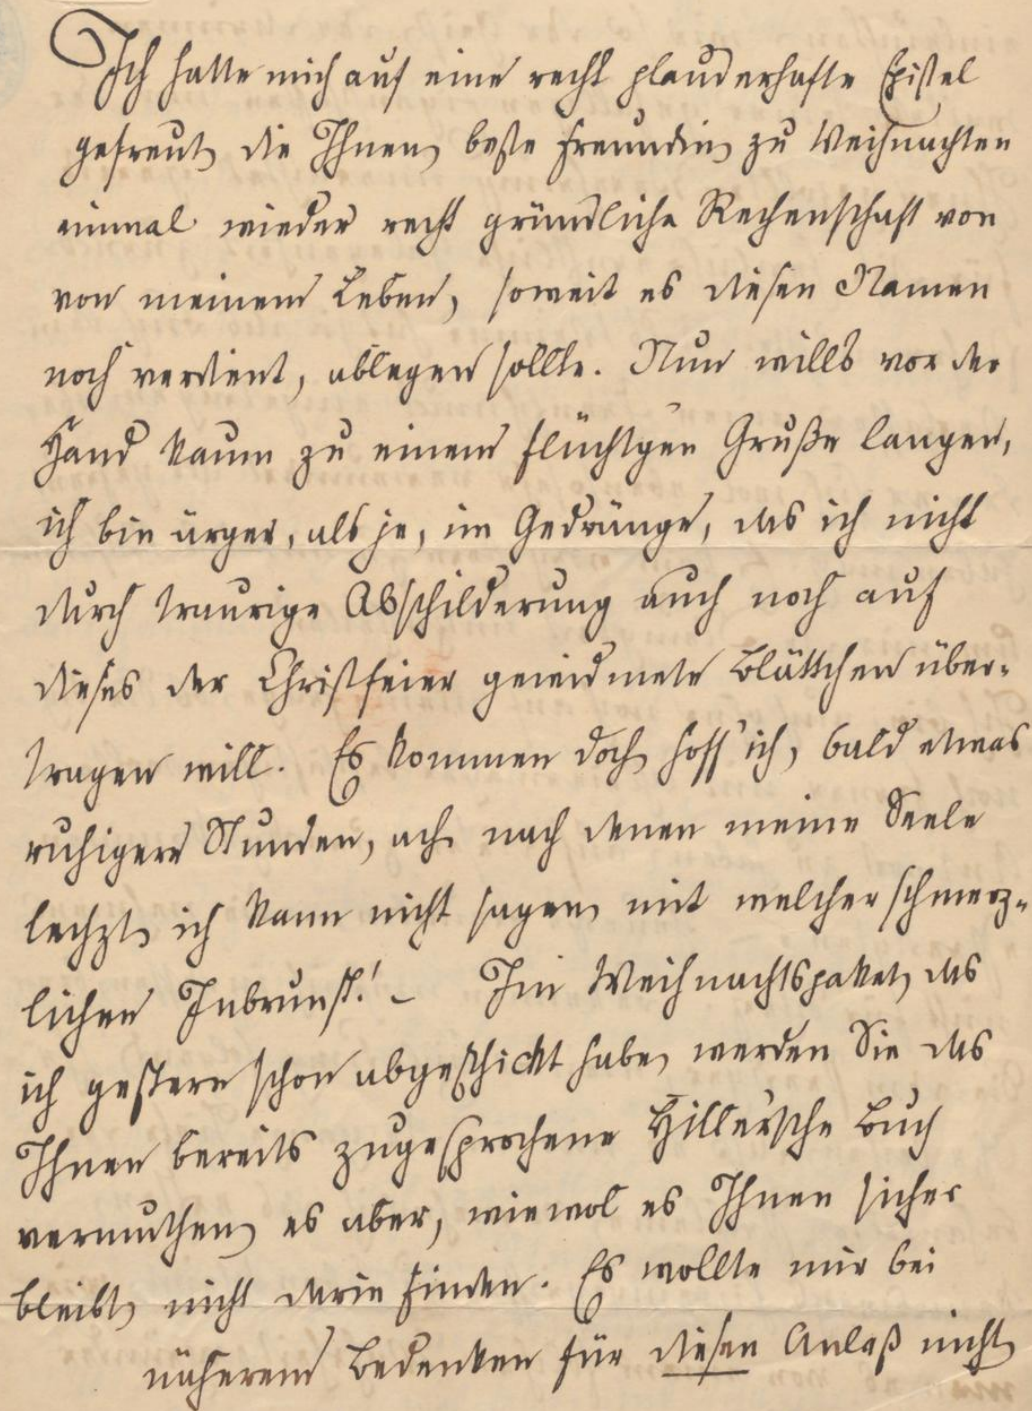 Ich hatte mich auf eine recht plauderhafte Epistel
gefreut, die Ihnen, beste Freundin, zu Weihnachten
einmal wieder recht gründliche Rechenschaft von
von meinem Leben, soweit es diesen Namen
noch verdient, ablegen sollte. Nun wills vor der
Hand kaum zu einem flüchtgen Gruße langen,
ich bin ärger, als je, im Gedränge, das ich nicht
durch traurige Abschilderung auch noch auf
dieses der Christfeier gewidmete Blättchen über-
tragen will. Es kommen doch, hoff' ich, bald etwas
ruhigere Stunden, ach, nach denen meine Seele
lechzt, ich kann nicht sagen, mit welcher schmerz-
lichen Inbrunst! – Im Weihnachtspaket, das
ich gestern schon abgeschickt habe, werden Sie das
Ihnen bereits zugesprochene Hiller'sche Buch
vermuthen, es aber, wiewol es Ihnen sicher
bleibt, nicht darin finden. Es wollte mir bei
näherem Bedenken für diesen Anlaß nicht